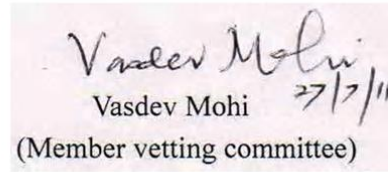 Vasdev Mohi
27/7/11
Vasdev Mohi
(Member vetting committee)